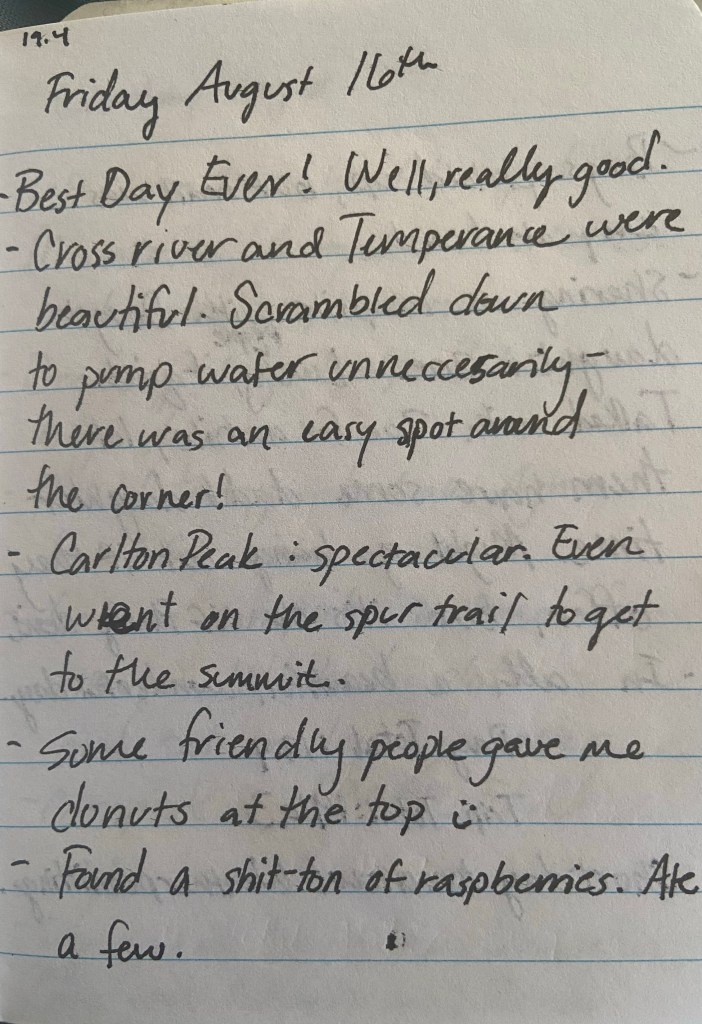 19.4
Friday August 16th
- Best Day Ever! Well, really good.
- Cross river and Temperance were
beautiful. Scrambled down
to pump water unneccesarily -
there was an easy spot around
the corner!
- Carlton Peak : spectacular. Even
went on the spur trail to get
to the summit.
- Some friendly people gave me
donuts at the top :)
- Found a shit-ton of raspberries. Ate
a few.